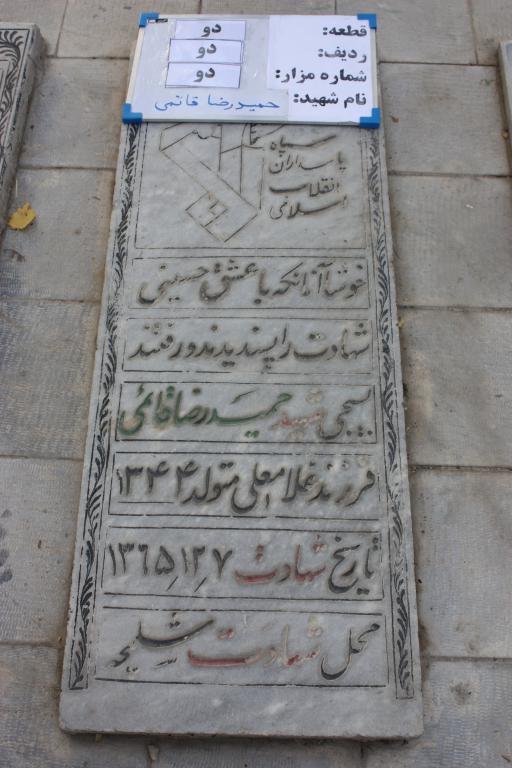 قطعه: دو
ردیف: دو
شماره مزار: دو
نام شهید: حمیدرضا قائمی
سپاه
پاسداران
انقلاب
اسلامی
خوشا آنانکه با عشق حسینی
شهادت را پسندیدند و رفتند
بسیجی شهید حمیدرضا قائمی
فرزند غلامعلی متولد ۱۳۴۴
تاریخ شهادت ۱۳۶۵٫۱۲٫۷
محل شهادت شلمچه